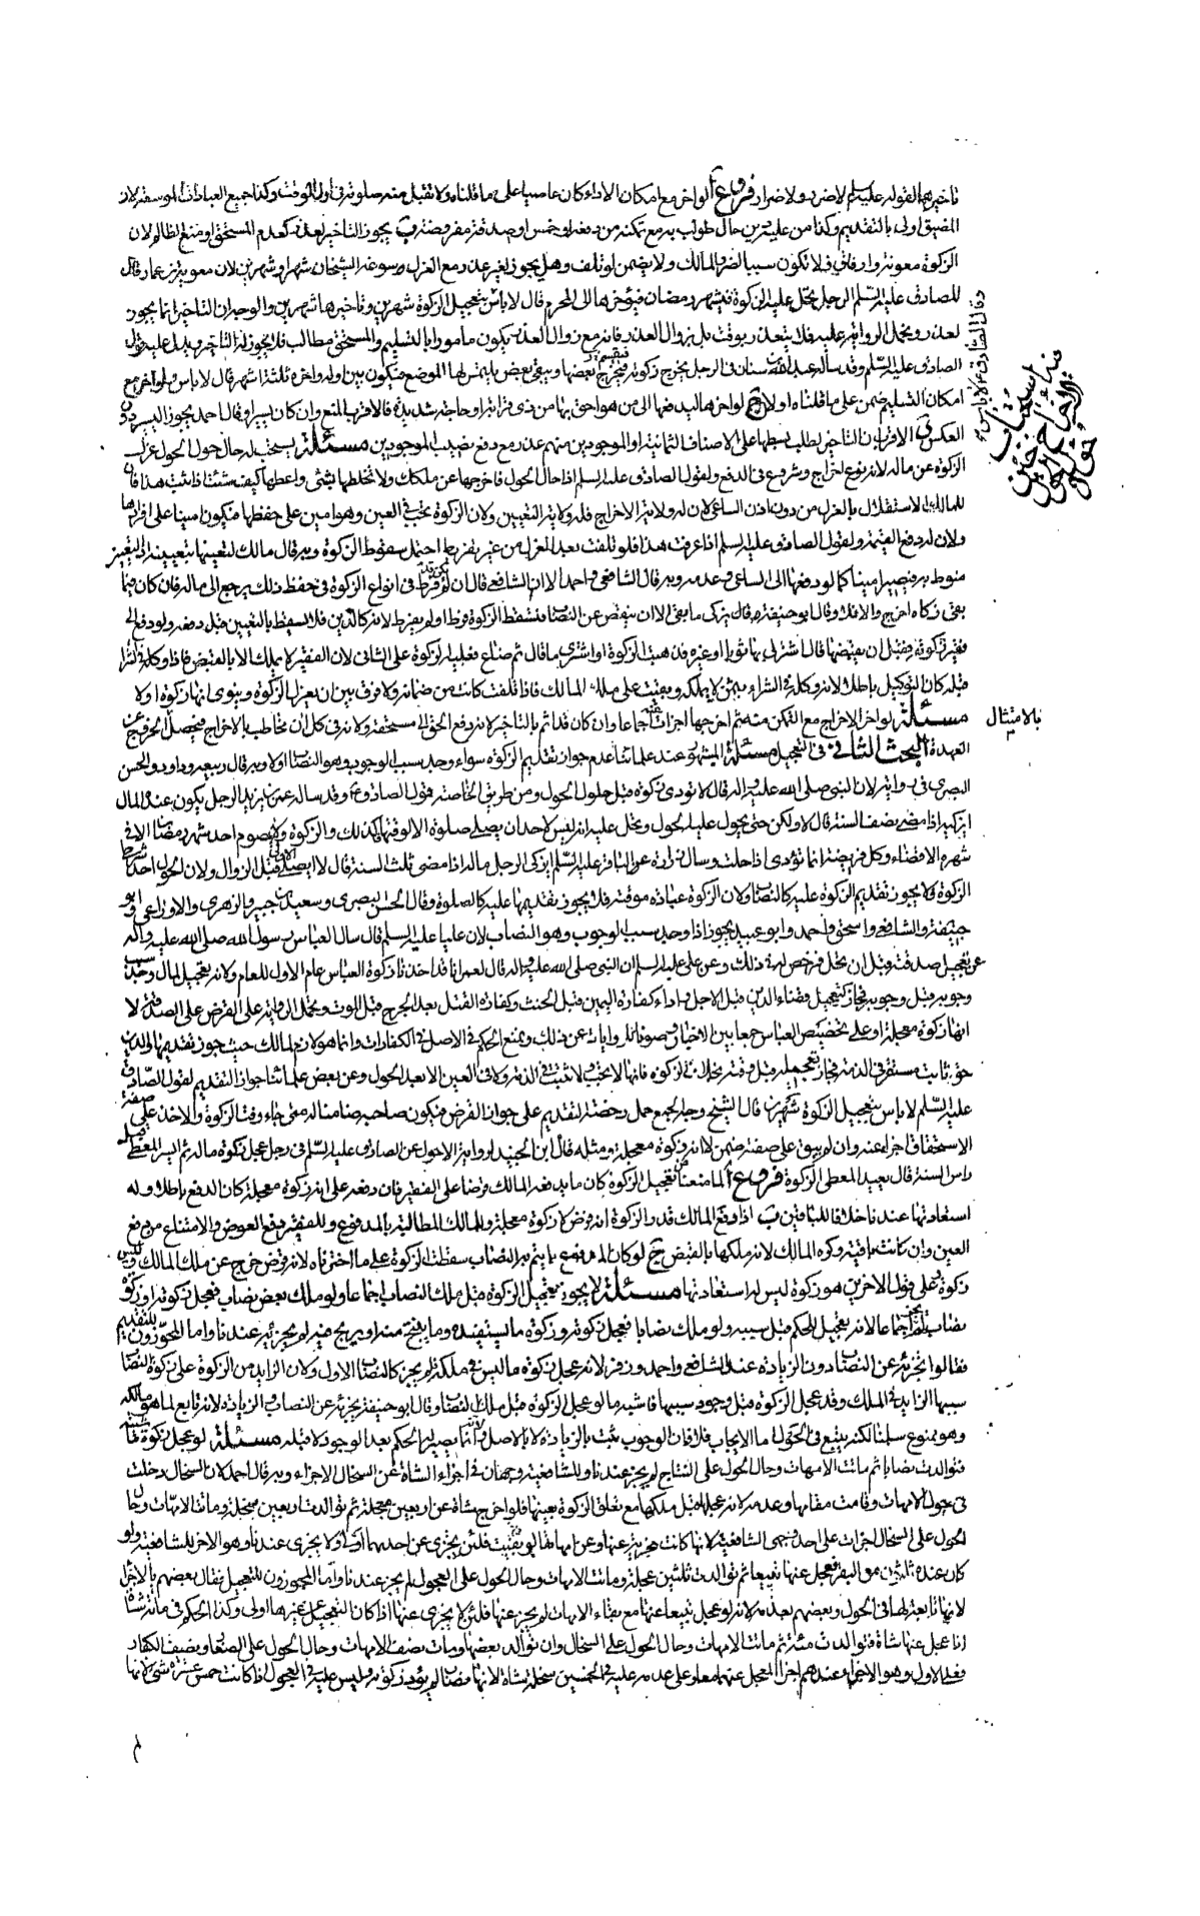 تأخيرها لقوله عليه السلم لا ضرر ولا ضرار فروع آ لو اخر مع امكان الاداء كان عاصيا على ما قلناه ولا تقبل منه صلوته في اول الوقت وكذا جميع العبادات الموسعة لان
المضيق اولى بالتقديم وكذا من عليه دين حال طولب به مع تمكنه من دفعه او خمس او صدقة مفروضة ب يجوز التاخير لعذر كعدم المستحق او منع الظالم لان
الزكوة معونة وارفاق فلا تكون سببا لضرر المالك ولا يضمن لو تلف وهل يجوز لغير عذر مع العزل وسوغه الشيخان شهرا وشهرين لان معوية بن عمار قال
للصادق عليه السّلم الرجل يحل عليه الزكوة في شهر رمضان فيؤخرها الى المحرم قال لا باس بتعجيل الزكوة شهرين وتأخيرها شهرين والوجه ان التاخير انما يجوز
لعذر ويحمل الرواية عليه فلا يتعذر بوقت بل بزوال العذر فانه مع زوال العذر يكون مأمورا بالتسليم والمستحق مطالب فلا يجوز له التاخير ويدل عليه قول
الصادق عليه السّلم وقد سأله عبد الله بن سنان في الرجل يخرج زكوته فيقسم بعضها ويبقى بعض يلتمس لها الموضع فيكون بين اوله واخره ثلثة اشهر قال لا باس ولو اخر مع
امكان التسليم ضمن على ما قلناه اولا ج لو اخرها ليدفعها الى من هو احق بها من ذي قرابة او حاجة شديدة فالاقرب المنع وان كان يسيرا وقال احمد يجوز اليسير دون
العكس د الاقرب ان التاخير بطلب بسطها على الاصناف الثمانية او الموجودين منهم عذر مع دفع نصيب الموجودين مسئلة يستحب له حال حول الحول عزل
الزكوة عن ماله لانه نوع اخراج وشروع في الدفع ولقول الصادق عليه السلم اذا حال الحول فاخرجها عن ملكك ولا تخلطها بشئ واعطها كيف شئت اذا ثبت هذا فان
للمالك الاستقلال بالعزل من دون اذن الساعي لان له ولاية الاخراج فله ولاية التعيين ولان الزكوة تجب في العين وهو امين على حفظها فيكون امينا على افرادها
ولان له دفع القيمة ولقول الصادق عليه السلم اذا عرفت هذا فلو تلفت بعد العزل من غير تفريط احتمل سقوط الزكوة وبه قال مالك لتعينها بتعيينه اذ التعيين
منوط به فيصير امينا كما لو دفعها الى الساعي وعدمه وبه قال الشافعي واحمد الا ان الشافعي قال ان لم يكن قد فرط في انواع الزكوة في حفظ ذلك يرجع الى ماله فان كان فيما
بقى زكاه اخرج والا فلا وقال ابو حنيفة يزكى ما بقى الا ان ينقص عن النصاب فتسقط الزكوة فرط او لم يفرط لانه كالدين فلا يسقط بالتعيين قبل دفعه ولو دفع الى
فقير زكوته فقبل ان يقبضها قال اشتر لي بها ثوبا او غيره فذهبت الزكوة او اشترى ما قال ثم ضاع فعليه الزكوة على الثاني لان الفقير لا يملك الا بالقبض فاذا وكله في الشراء
قبله كان التوكيل باطلا لانه وكله في الشراء بثمن لا يملكه وبقيت على ملك المالك فاذا تلفت كانت من ضمانه ولا فرق بين ان يعزل الزكوة وينوى انها زكوة او لا
مسئلة لو اخر الاخراج مع التمكن منه ثم اخرجها اجزات عنه اجماعا وان كان قد اثم بالتأخير لانه دفع الحق الى مستحقه ولانه في كل آن مخاطب بالاخراج فيحصل الخروج عن
العهدة البحث الثاني في التعجيل مسئلة المشهور عند علمائنا عدم جواز تقديم الزكوة سواء وجد سبب الوجوب وهو النصاب او لا وبه قال ربيعة وداود والحسن
البصري في رواية لان النبي صلى الله عليه واله قال لا تؤدى زكوة قبل حلول الحول ومن طريق الخاصة قول الصادق ع وقد ساله عمر بن يزيد الرجل يكون عنده المال
ايزكيه اذا مضى نصف السنة قال لا ولكن حتى يحول عليه الحول ويحل عليه انه ليس لاحد ان يصلى صلوة الا لوقتها كذلك والزكوة ولا يصوم احد شهر رمضان الا في
شهره الا قضاء وكل فريضة انما تؤدى اذا حلت وسال زرارة عن الباقر عليه السّلم ايزكى الرجل ماله اذا مضى ثلث السنة قال لا ايصلى الاولى قبل الزوال ولان الحول احد شرطي
الزكوة فلا يجوز تقديم الزكوة عليه كالنصاب ولان الزكوة عبادة موقتة فلا يجوز تقديمها عليه كالصلوة وقال الحسن البصري وسعيد بن جبير والزهري والاوزاعي وابو
حنيفة والشافعي واسحق واحمد وابو عبيد يجوز اذا وجد سبب الوجوب وهو النصاب لان عليا عليه السلم قال سال العباس رسول الله صلى الله عليه واله
عن تعجيل صدقته قبل ان يحل فرخص له في ذلك وعن علي عليه السلم ان النبي صلى الله عليه واله قال لعمر انا قد اخذنا زكوة العباس عام الاول للعام ولانه تعجيل لمال وجد سبب
وجوبه قبل وجوبه فجاز كتعجيل قضاء الدين قبل الاجل واداء كفارة اليمين قبل الحنث وكفارة القتل بعد الجرح قبل الموت ويحمل الرواية على الفرض على الصدقة لا
انها زكوة معجلة او على تخصيص العباس جمعا بين الاخبار وصونا للروايات عن ذلك ويمنع الحكم في الاصل في الكفارات وانما هو لازم لمالك حيث جوز تقديمها والدين
حق ثابت مستقر في الذمة فجاز تعجيله قبل وقته بخلاف الزكوة فانها لا تجب ولا تثبت في الذمة ولا في العين الا بعد الحول وعن بعض علمائنا جواز التقديم لقول الصادق
عليه السّلم لا باس بتعجيل الزكوة شهرين قال الشيخ وجه الجمع حمل رخصة التقديم على جواز القرض فيكون صاحبه ضامنا له متى جاء وقت الزكوة والاخذ على صفة
الاستحقاق اجزاء عنه وان لم يبق على صفته ضمن لا انه زكوة معجلة ومثله قال ابن الجنيد لرواية الاحول عن الصادق عليه السّلم في رجل عجل زكوة ماله ثم ايسر المعطى قبل
راس السنة قال يعيد المعطى الزكوة فروع آ لما منعنا من تعجيل الزكوة كان ما يدفعه المالك قرضا على الفقير فان دفعه على انه زكوة معجلة كان الدفع باطلا وله
استعادتها عندنا خلافا للباقين ب اذا دفع المالك قدر الزكوة انه قرض لا زكوة معجلة وللمالك المطالبة بالمدفوع وللفقير دفع العوض والامتناع من دفع
العين وان كانت باقية وكره المالك لانه ملكها بالقبض ج لو كان المدفوع مما يتم به النصاب سقطت الزكوة على ما اخترناه لانه قرض خرج عن ملك المالك وليس
زكوة وعلى قول الاخرين هو زكوة ليس له استعادتها مسئلة لا يجوز تعجيل الزكوة قبل ملك النصاب اجماعا ولو ملك بعض نصاب فعجل زكوته او زكوة
نصاب لم يجز اجماعا لانه تعجيل للحكم قبل سببه ولو ملك نصابا فعجل زكوته وزكوة ما يستفيده وما ينتج منه او يربح فيه لم يجزئه عندنا واما المجوزون للتقديم
فقالوا يجزئه عن النصاب دون الزيادة عند الشافعي واحمد وزفر لانه عجل زكوة ما ليس في ملكه فلم يجز كالنصاب الاول ولان الزايد من الزكوة على زكوة النصاب
سببها الزايد في الملك وقد عجل الزكوة قبل وجود سببها فاشبه ما لو عجل الزكوة قبل ملك النصاب وقال ابو حنيفة يجزئه عن النصاب والزيادة لانه تابع لما هو مالكه
وهو ممنوع سلمنا لكنه يتبع في الحول اما الايجاب فلا فان الوجوب ثبت بالزيادة لا بالاصل ولانه انما يصير له الحكم بعد الوجود لا قبله مسئلة لو عجل زكوة ماشيته
فتوالدت نصابا ثم ماتت الامهات وحال الحول على النتاج لم يجز عندنا وللشافعية وجهان في اجزاء الشاة عن السخال الاجزاء وبه قال احمد لان السخال دخلت
في حول الامهات وقامت مقامها وعدمه لانه عجلها قبل ملكها مع تعلق الزكوة بعينها فلو اخرج شاة عن اربعين معجلة ثم توالدت اربعين سخلة وماتت الامهات وحال
الحول على السخال اجزات على احد وجهى الشافعية لانها كانت مجزية عنها وعن امهاتها لو بقيت فلئن يجزى عن احدهما اولى ولا يجزى عندنا وهو الاخر للشافعية ولو
كان عنده ثلثون من البقر فعجل عنها تبيعا ثم توالدت ثلثين عجلة وماتت الامهات وحال الحول على العجول لم يجز عندنا واما المجوزون للتعجيل فقال بعضهم بالاجزاء
لانها تابعة لها في الحول وبعضهم بعدمه لانه لو عجل تبيعا عنها مع بقاء الامهات لم يجز عنها فلئن لا يجزى عنها اذا كان التعجيل عن غيرها اولى وكذا الحكم في مائة شاة
اذا عجل عنها شاة فتوالدت مئة ثم ماتت الامهات وحال الحول على السخال وان توالد بعضها ومات نصف الامهات وحال الحول على الصغار ونصف الكبار
فعلى الاول وهو الاجزاء عندهم اجزأ المعجل عنهما معا وعلى عدمه عليه في الخمسين سخلة شاة لانها نصاب لم يؤد زكوته وليس عليه في العجول اذا كانت خمس عشرة شئ لانها
وقال الصادق ع لا باس
بالامتثال